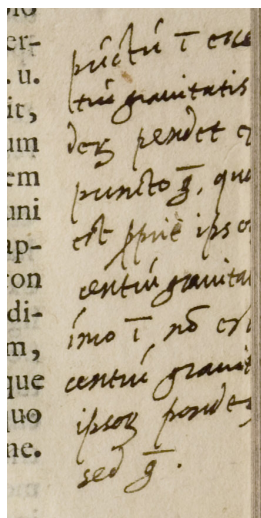 er-
. u.
it,
um
em
uni
ap-
ron
di-
m,
que
quo
ne.
púctú ī
trú grauitatis
deꝝ pendet
puncto ḡ, quo
est ꝓprie ipso
centrú grauita
imo ī, nō
centrú grauit
ipsoꝝ pondeꝝ
sed ḡ.